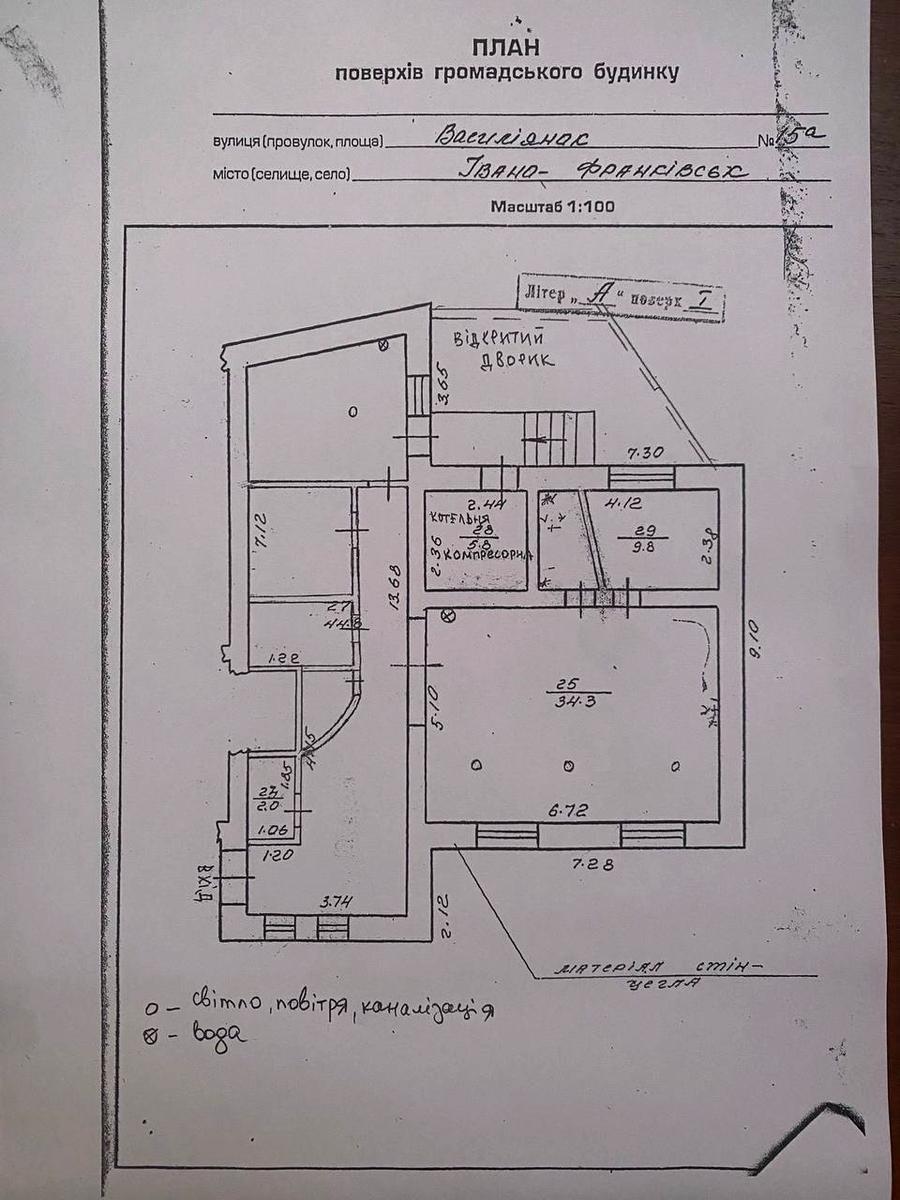 ПЛАН
поверхів громадського будинку
вулиця (провулок, площа) Василіянок №15а
місто (селище, село) Івано- Франківськ
Масштаб 1:100
Літер „А“ поверх I
Відкритий
дворик
3.65
7.30
2.44
4.12
котельня
28
5.8
компресорна
2.36
29
9.8
2.38
7.12
13.68
27
44.8
1.22
9.10
25
34.3
5.10
1.85
24
2.0
1.06
1.20
6.72
Вхід
3.74
7.28
2.12
матеріал стін-
цегла
о - світло, повітря, каналізація
⊗ - вода